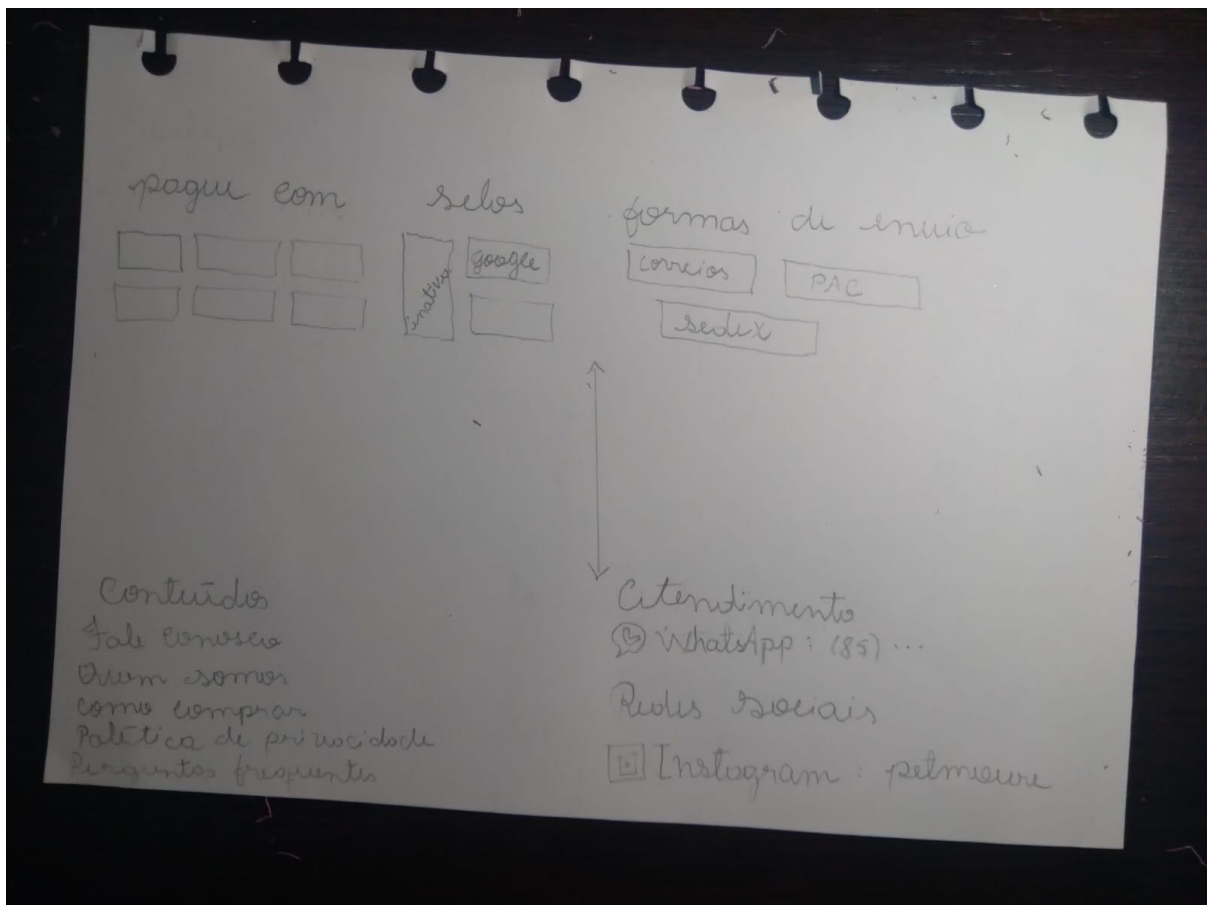 pague com
selos
formas de envio
inativo
google
correios
PAC
sedex
Conteúdos
Fale conosco
Quem somos
como comprar
Política de privacidade
Perguntas frequentes
Atendimento
WhatsApp: (85) ...
Redes Sociais
Instagram: petmoure